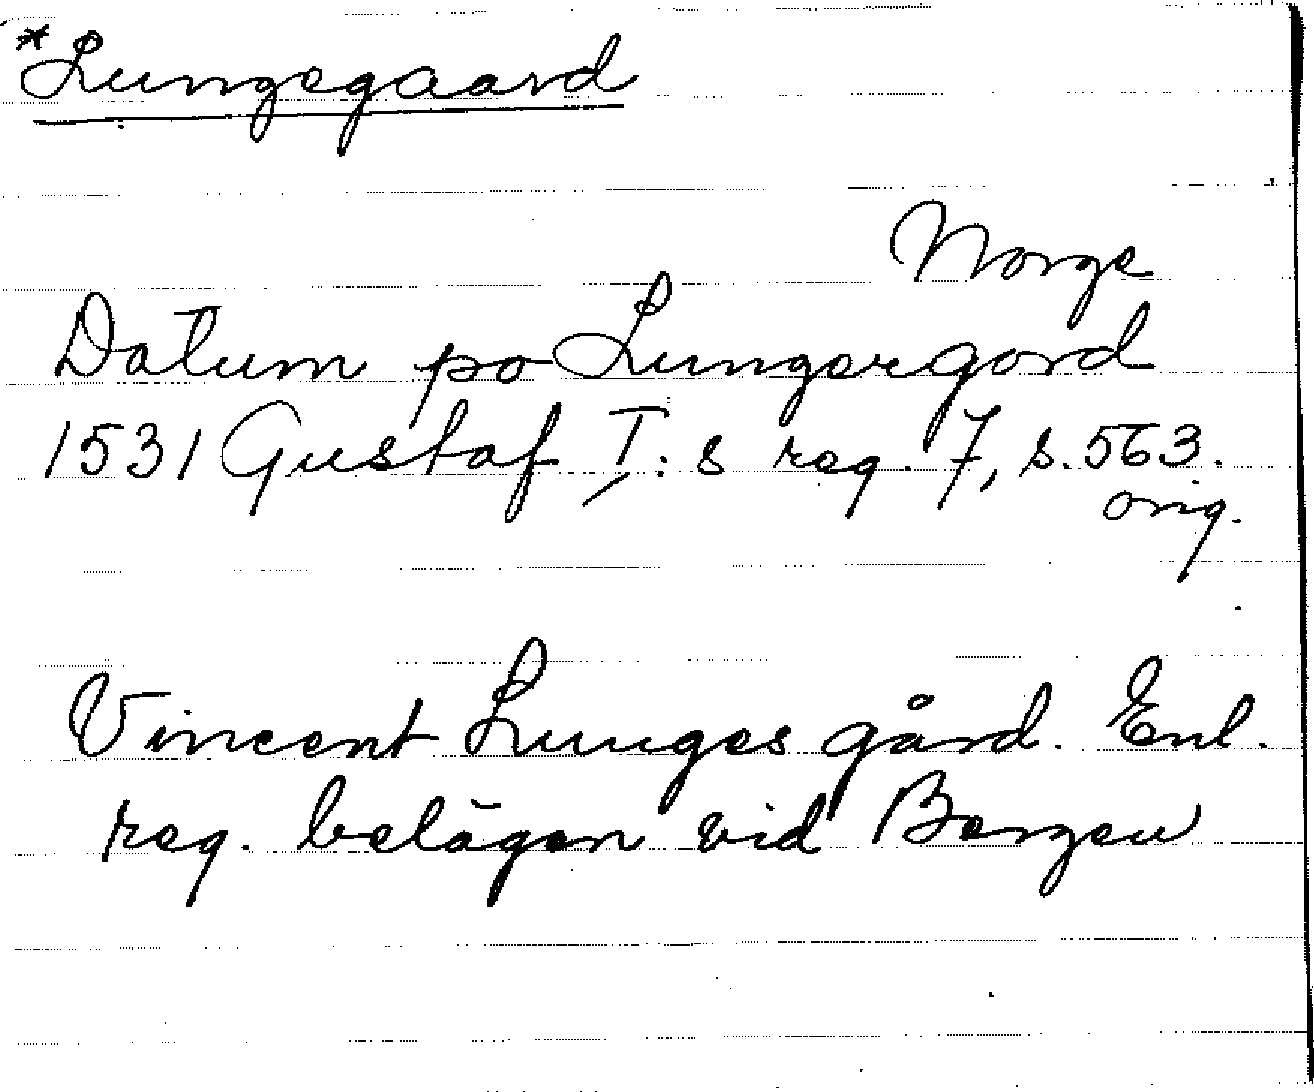 *Lungegaard
Norge
Datum po Lungergord
1531 Gustaf I:s reg. 7, s. 563.
orig.
Vincent Lunges gård. Enl.
reg. belägen vid Bergen